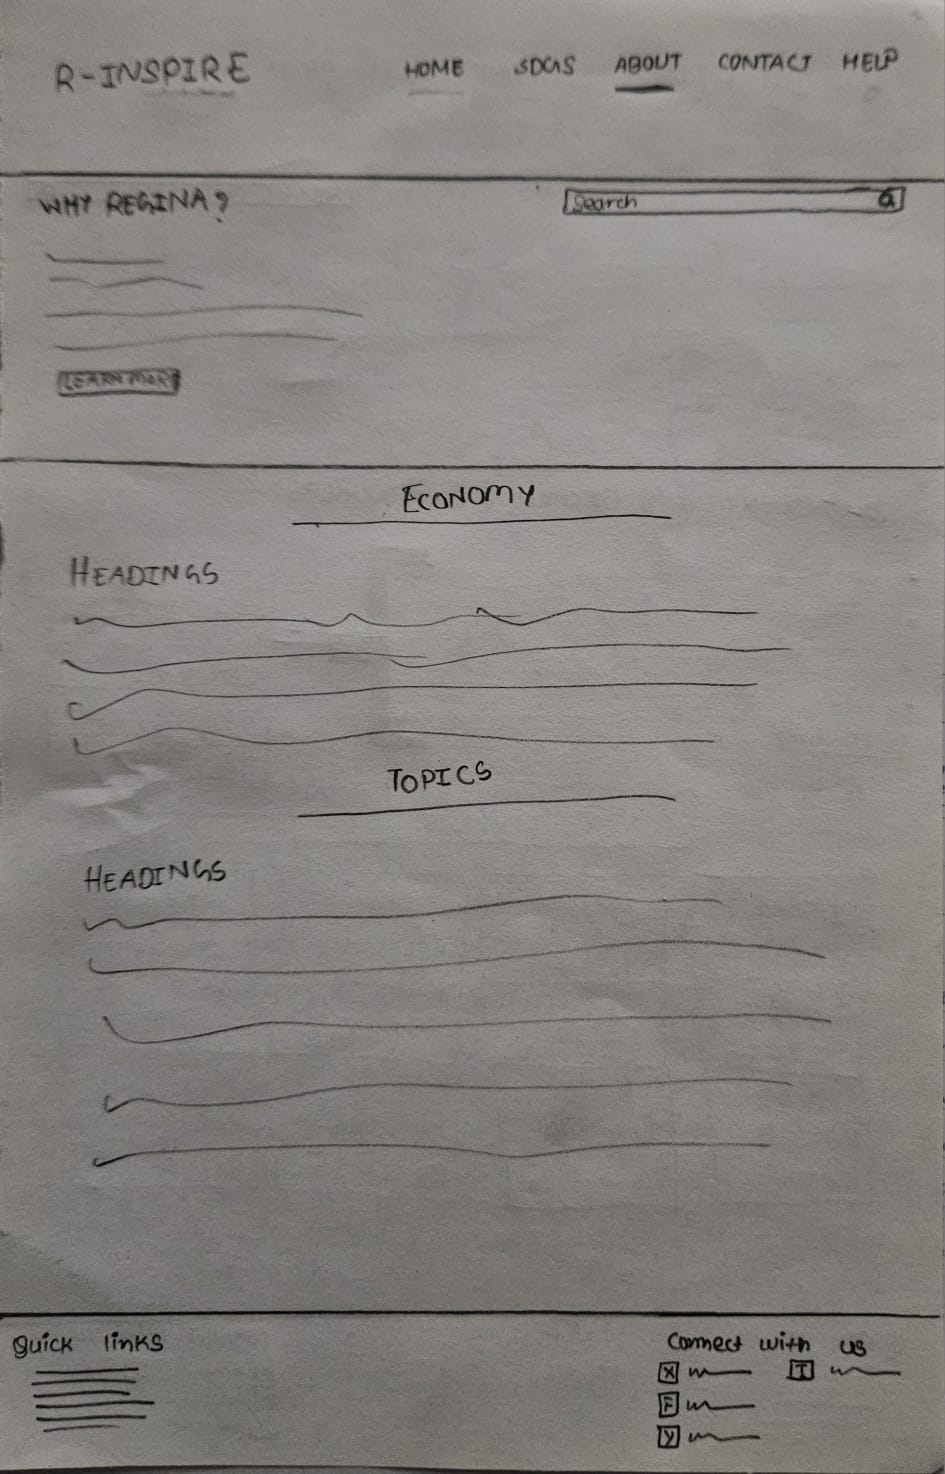 R-INSPIRE HOME SDGS ABOUT CONTACT HELP
WHY REGINA?
Search
LEARN MORE
ECONOMY
HEADINGS
TOPICS
HEADINGS
Quick links
Connect with us
X
I
F
Y